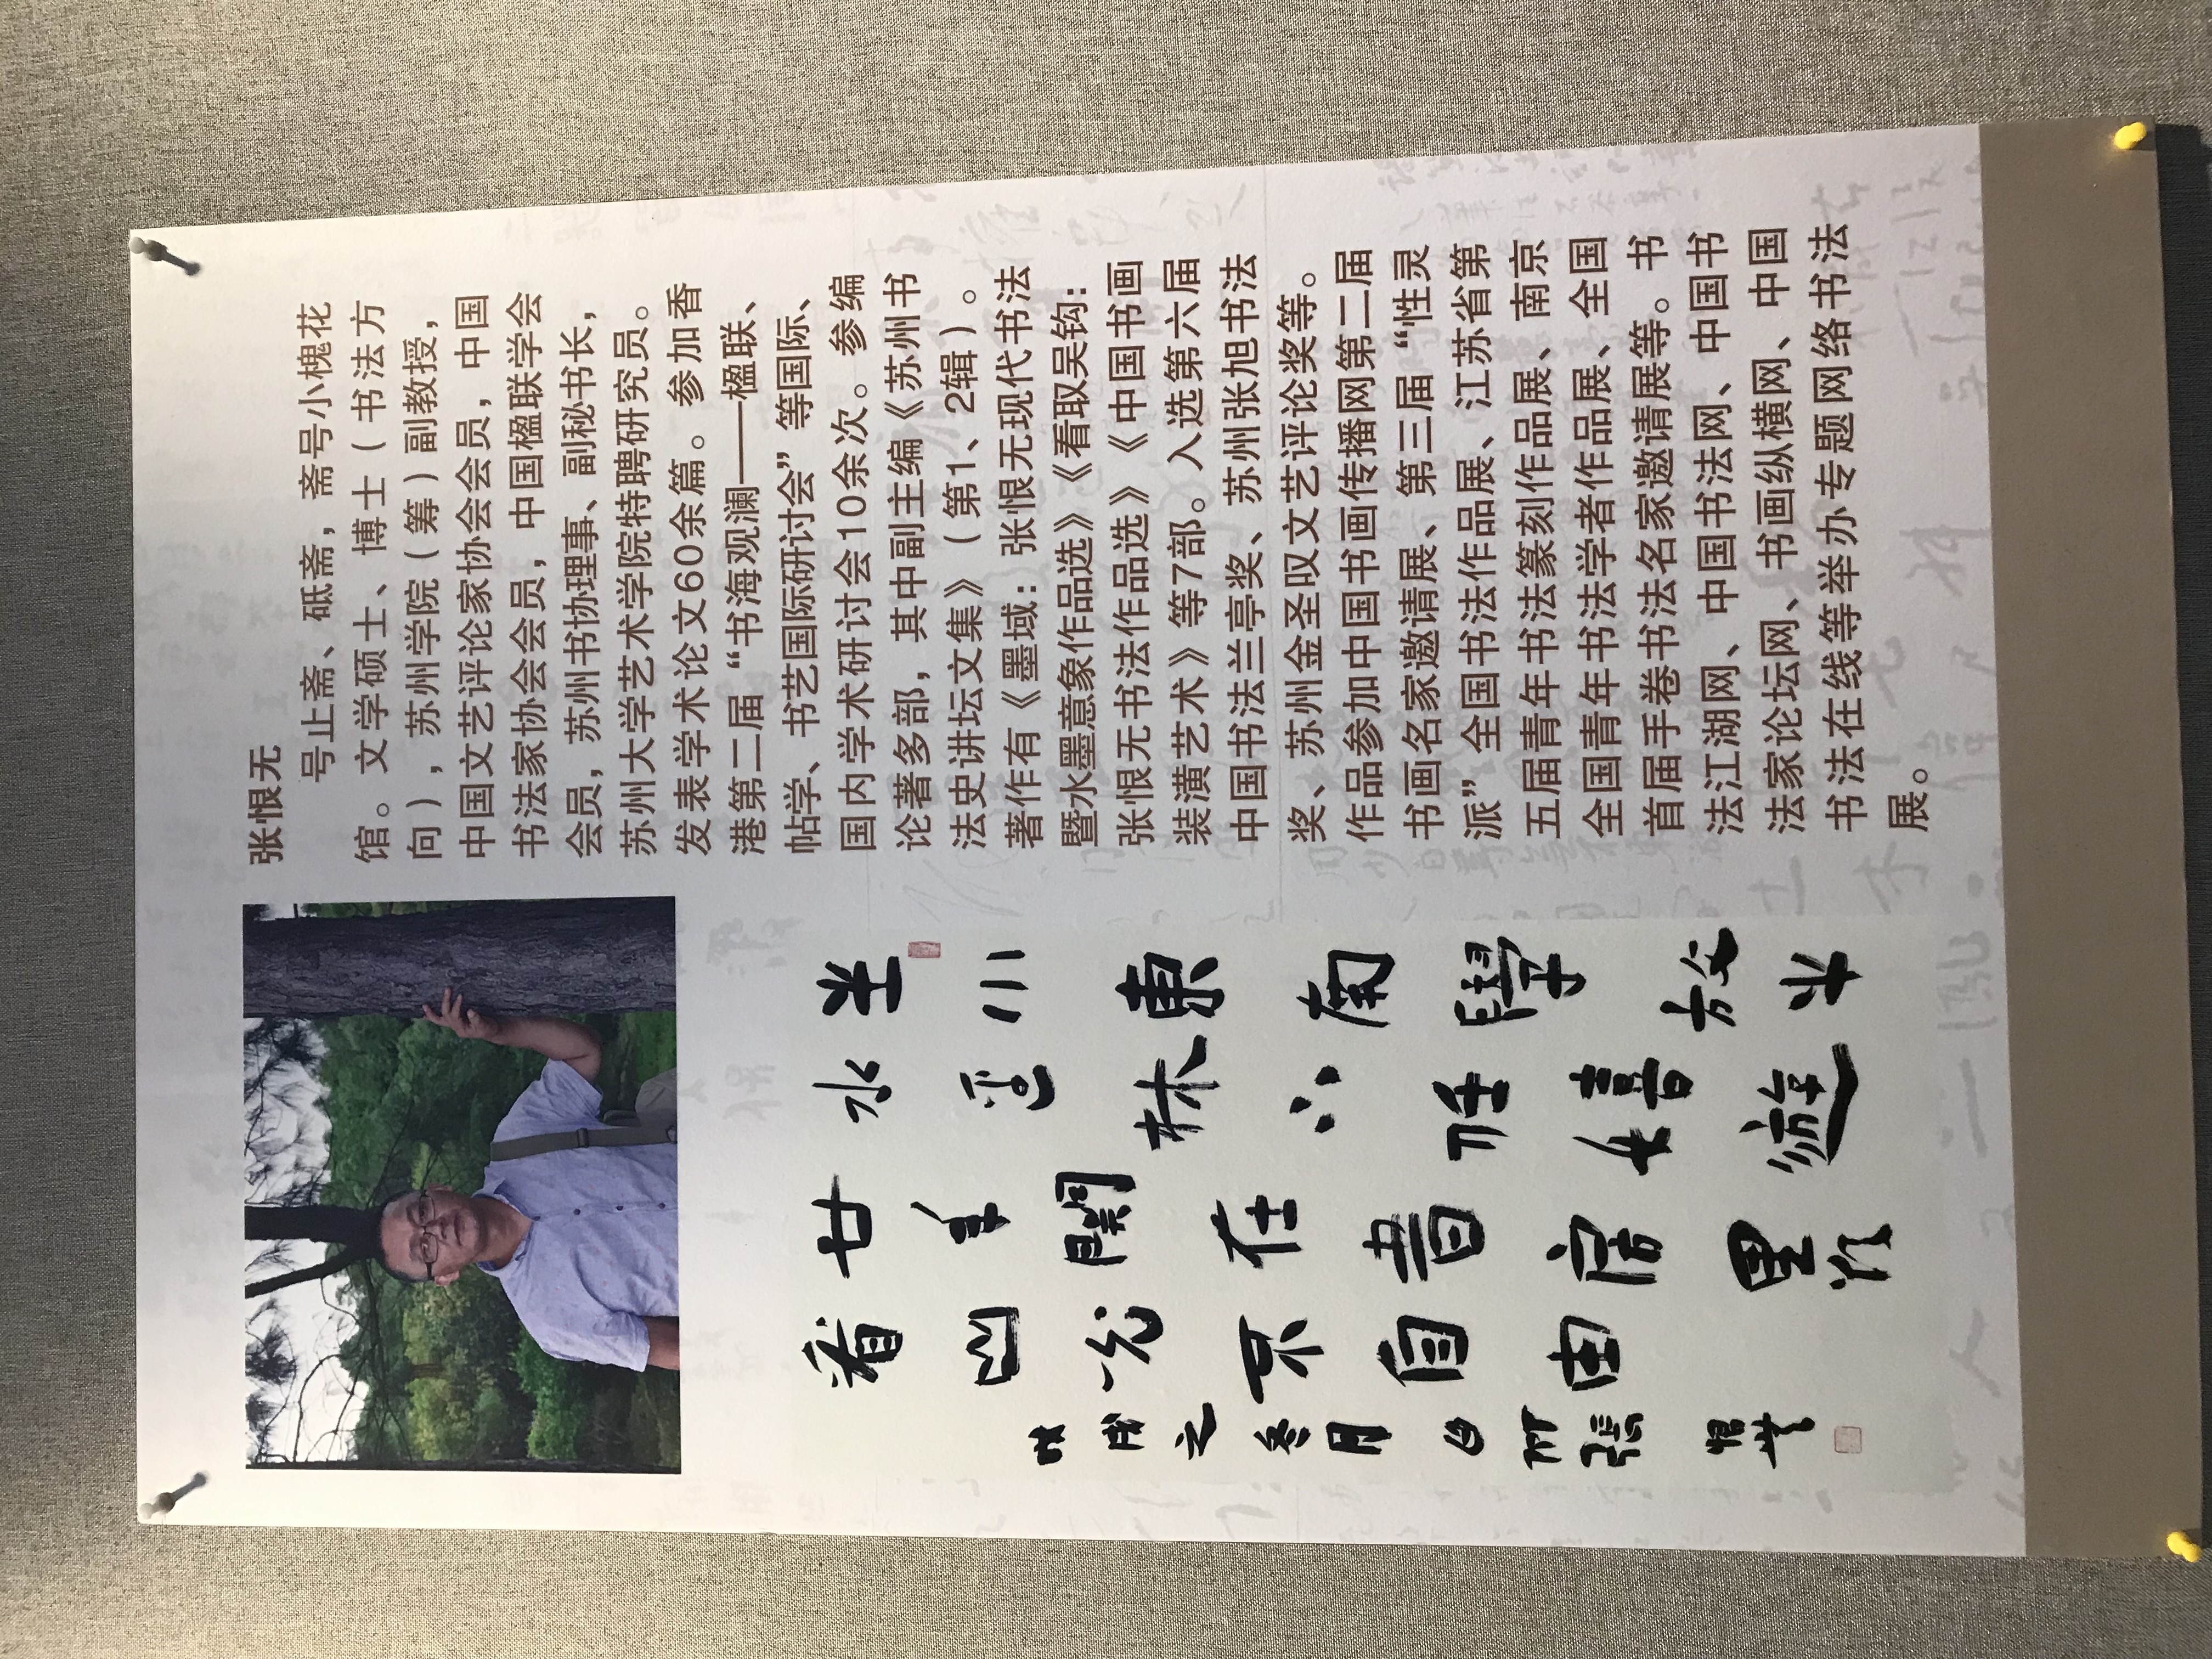 张恨无
号止斋、砥斋，斋号小槐花
馆。文学硕士、博士（书法方
向），苏州学院（筹）副教授，
中国文艺评论家协会会员，中国
书法家协会会员，中国楹联学会
会员，苏州书协理事、副秘书长，
苏州大学艺术学院特聘研究员。
发表学术论文60余篇。参加香
港第二届“书海观澜——楹联、
帖学、书艺国际研讨会”等国际、
国内学术研讨会10余次。参编
论著多部，其中副主编《苏州书
法史讲坛文集》（第1、2辑）。
著作有《墨域：张恨无现代书法
暨水墨意象作品选》《看取吴钩：
张恨无书法作品选》《中国书画
装潢艺术》等7部。入选第六届
中国书法兰亭奖、苏州张旭书法
奖、苏州金圣叹文艺评论奖等。
作品参加中国书画传播网第二届
书画名家邀请展、第三届“性灵
派”全国书法作品展、江苏省第
五届青年书法篆刻作品展、南京
全国青年书法学者作品展、全国
首届手卷书法名家邀请展等。书
法江湖网、中国书法网、中国书
法家论坛网、书画纵横网、中国
书法在线等举办专题网络书法
展。
東南學
水 林 任 遊
廿年關在書房里
看山光不自由
戊戌之冬月 張恨無